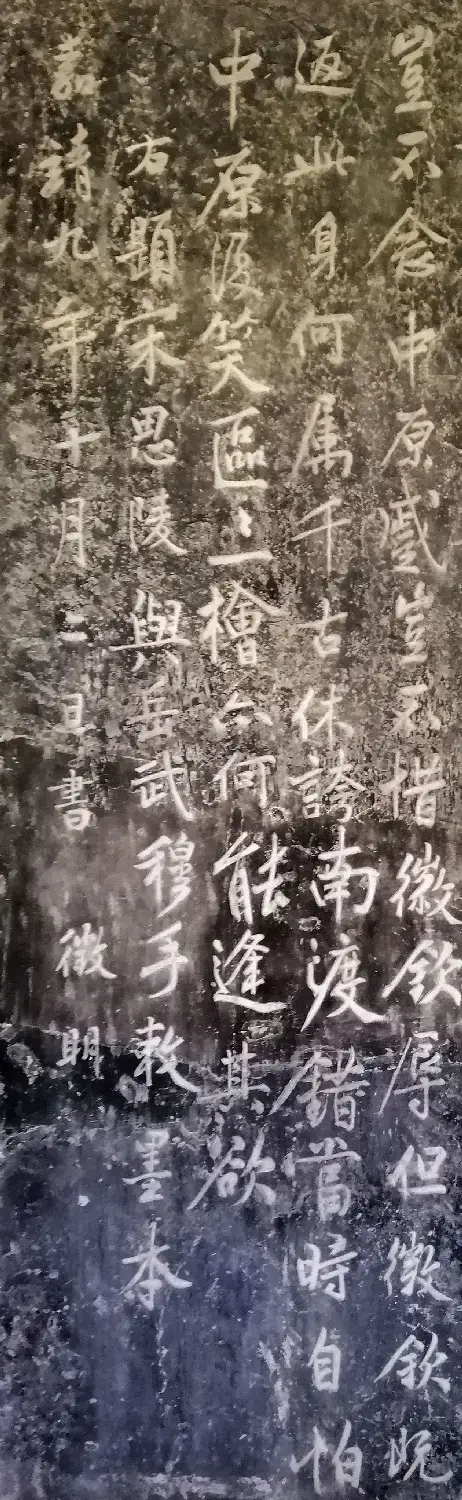 豈不念中原蹙豈不惜徽欽辱但徽欽既
返此身何属千古休誇南渡錯當時自怕
中原復笑區〻一檜亦何能逢其欲
右題宋思陵與岳武穆手敕墨本
嘉靖九年十月二日書 徵明